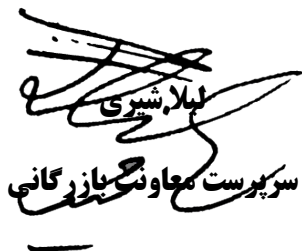 لیلا شیری
سرپرست معاونت بازرگانی